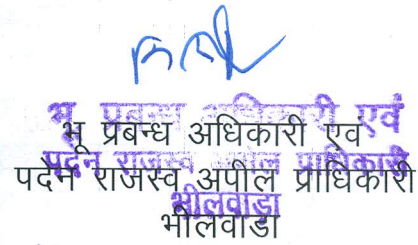 भू प्रबन्ध अधिकारी एवं
पदेन राजस्व अपील प्राधिकारी
भीलवाडा
भू प्रबन्ध अधिकारी एवं
पदेन राजस्व अपील प्राधिकारी
भीलवाडा